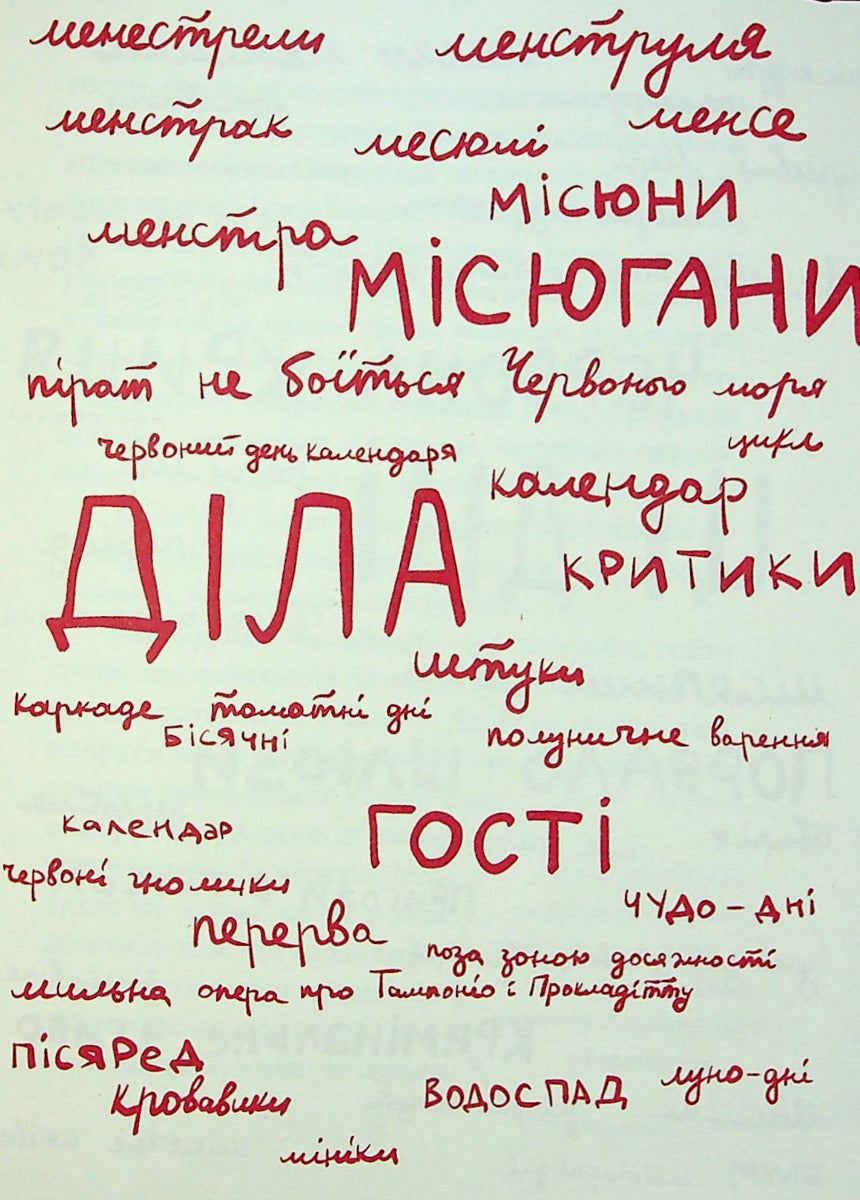 менестрелі менструля
менстрак месюлі менсе
місюни
менстра
місюгани
пірат не боїться Червоного моря
червоний день календаря цикл
календар
ДІЛА
критики
штуки
каркаде томатні дні
бісячні полуничне варення
гості
календар
червоні гномики
чудо-дні
перерва
поза зоною досяжності
мильна опера про Тампоніо і Прокладітту
пісяред
кровавики водоспад луно-дні
мініки